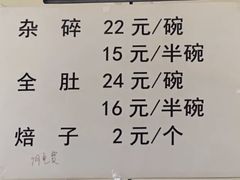 杂碎 22元/碗
15元/半碗
全肚 24元/碗
16元/半碗
焙子 2元/个